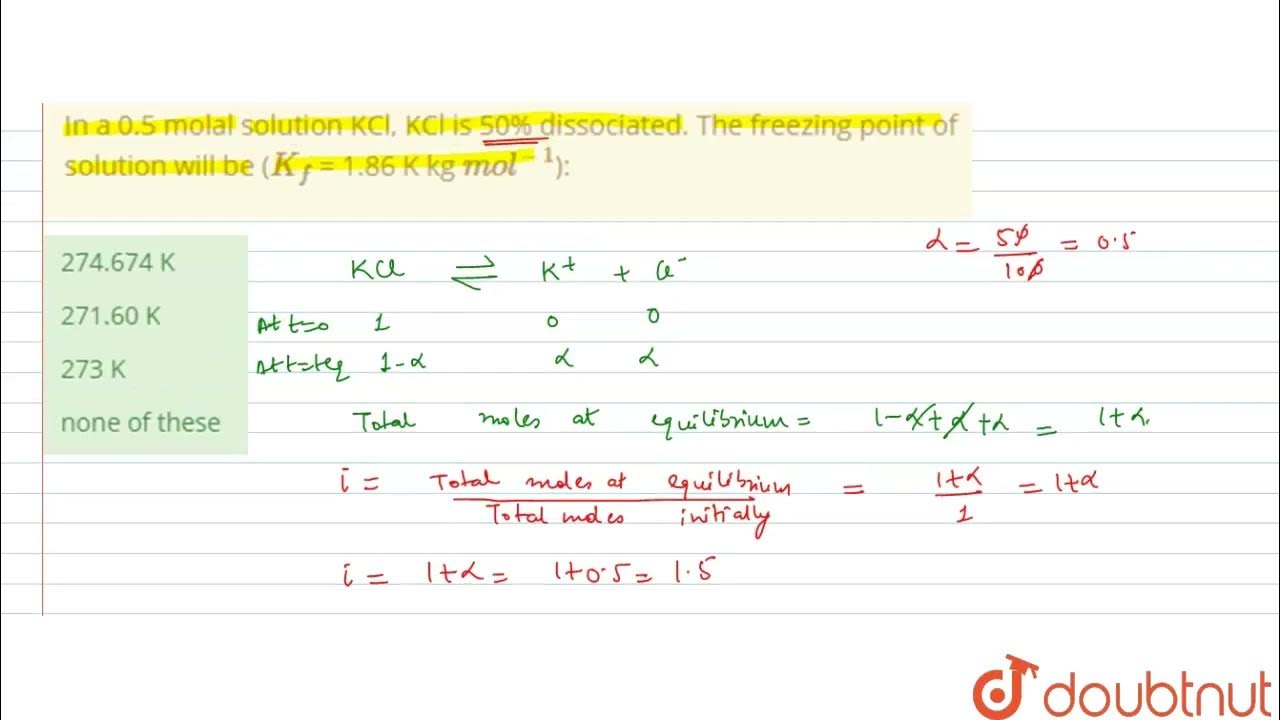 In a 0.5 molal solution KCl, KCl is 50% dissociated. The freezing point of
solution will be (K_f = 1.86 K kg mol^-1):
α = 50/100 = 0.5
274.674 K
271.60 K
273 K
none of these
KCl ⇌ K⁺ + Cl⁻
At t=0 1 0 0
At t=teq 1-α α α
Total moles at equilibrium = 1-α+α+α = 1+α.
i = Total moles at equilibrium / Total moles initially = 1+α / 1 = 1+α
i = 1+α = 1+0.5 = 1.5
doubtnut